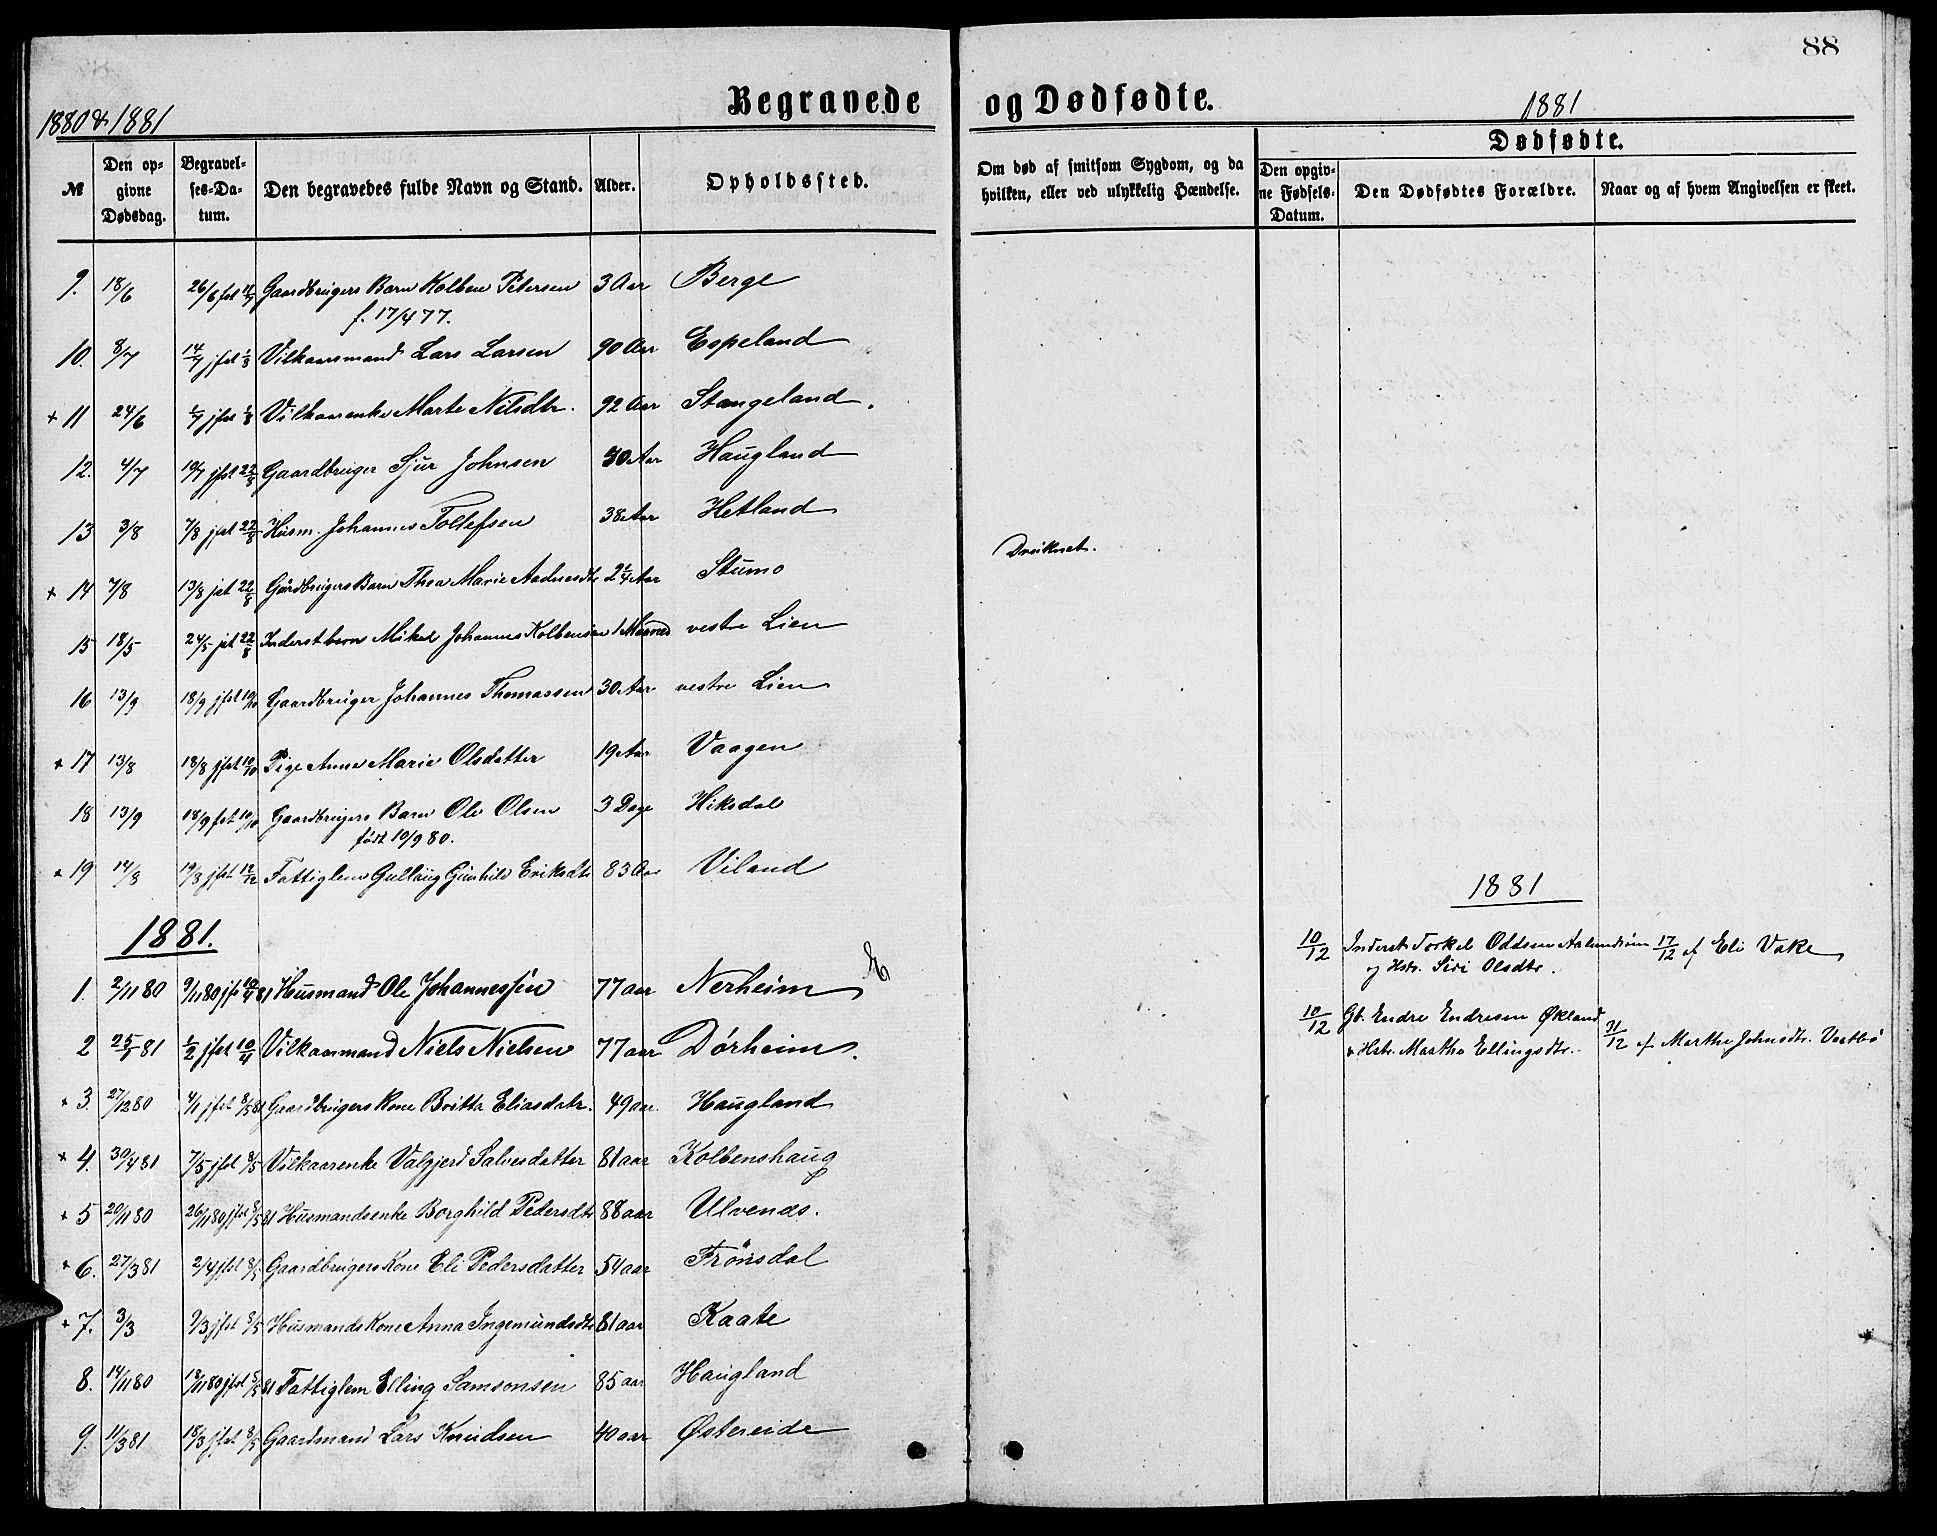 88
Begravede og Dødfødte.
1880 & 1881
1881
Dødfødte.
№
Den opgivne Dødsdag.
Begravelses-Datum.
Den begravedes fulde Navn og Stand.
Alder.
Opholdssted.
Om død af smitsom Sygdom, og da hvilken, eller ved ulykkelig Hændelse.
Den opgivne Fødsels-Datum.
Den Dødfødtes Forældre.
Naar og af hvem Angivelsen er skeet.
9. 18/6 26/6 fst Gaardbrugers Barn Kolben Petersen 3 Aar Berge
f. 17/4 77.
10. 8/7 14/7 jfst 1/8 Vilkaarsmand Lars Larsen 90 Aar Espeland
+ 11 24/6 1/7 jfst 1/8 Vilkaarenke Marte Nilsdtr. 92 Aar Stangeland.
12. 4/7 10/7 jfst 22/8 Gaardbruger Sjur Johnsen 50 Aar Haugland
13 3/8 7/8 jfst 22/8 Husm. Johannes Tollefsen 38 Aar Hetland
Druknet.
+ 14 7/8 13/8 jst 22/8 Gårdbrugers Barn Thea Marie Aadnesdtr 2 1/4 Aar Stumo
15 18/5 24/5 jst 22/8 Inderstbarn Mikel Johannes Kolbensen 1 Maaned vestre Lien
16 13/9 18/9 jfst 10/10 Gaardbruger Johannes Thomassen 30 Aar vestre Lien
+ 17 13/8 18/8 jfst 10/10 Pige Anne Marie Olsdatter 19 Aar Vaagen
18 13/9 18/9 fst 10/10 Gaardbrugers Barn Ole Olsen 3 Dage Hiksdal
født 10/9 80.
+ 19 14/8 19/8 jfst 12/12 Fattiglem Gullaug Gunhild Eriksdtr 83 Aar Viland
1881.
1. 2/11 80 9/11 80 jfst 10/4 81 Husmand Ole Johannessen 77 aar Nerheim
2 25/1 81 1/2 jfst 10/4 Vilkaarmand Niels Nielsen 77 aar Dørheim.
+ 3. 27/12 80 4/1 jfst 8/5 81 Gaardbrugers Kone Britta Eliasdatr. 49 aar. Haugland
+ 4. 30/4 81 7/5 jfst 8/5 Vilkaarenke Valgjerd Salvesdatter 81 aar Kolbenshaug
+ 5 20/11 80 26/11 80 jfst 8/5 81 Husmandsenke Borghild Pedersdtr 88 aar Ulvenes.
+ 6. 27/3 81 2/4 jfst 8/5 Gaardbrugers Kone Eli Pedersdatter 54 aar Frönsdal
+ 7. 3/3 9/3 jfst 8/5 Husmands Kone Anna Ingemundsdtr 81 aar Kaate
8. 14/11 80 18/11 80 jfst 8/5 81 Fattiglem Elling Samsonsen 85 aar Haugland
9. 11/3 81 18/3 jfst 8/5 Gaardmand Lars Knudsen 40 aar Østereide
1881
10/12 Inderst Torkel Oddsen 17/12 af Eli Vake
og Hstr. Siri Olsdtr.
10/12 Gb. Endre Endresen Økland 31/12 af Marthe Johnsdtr. Vestbø
& Hstr. Martha Ellingsdtr.